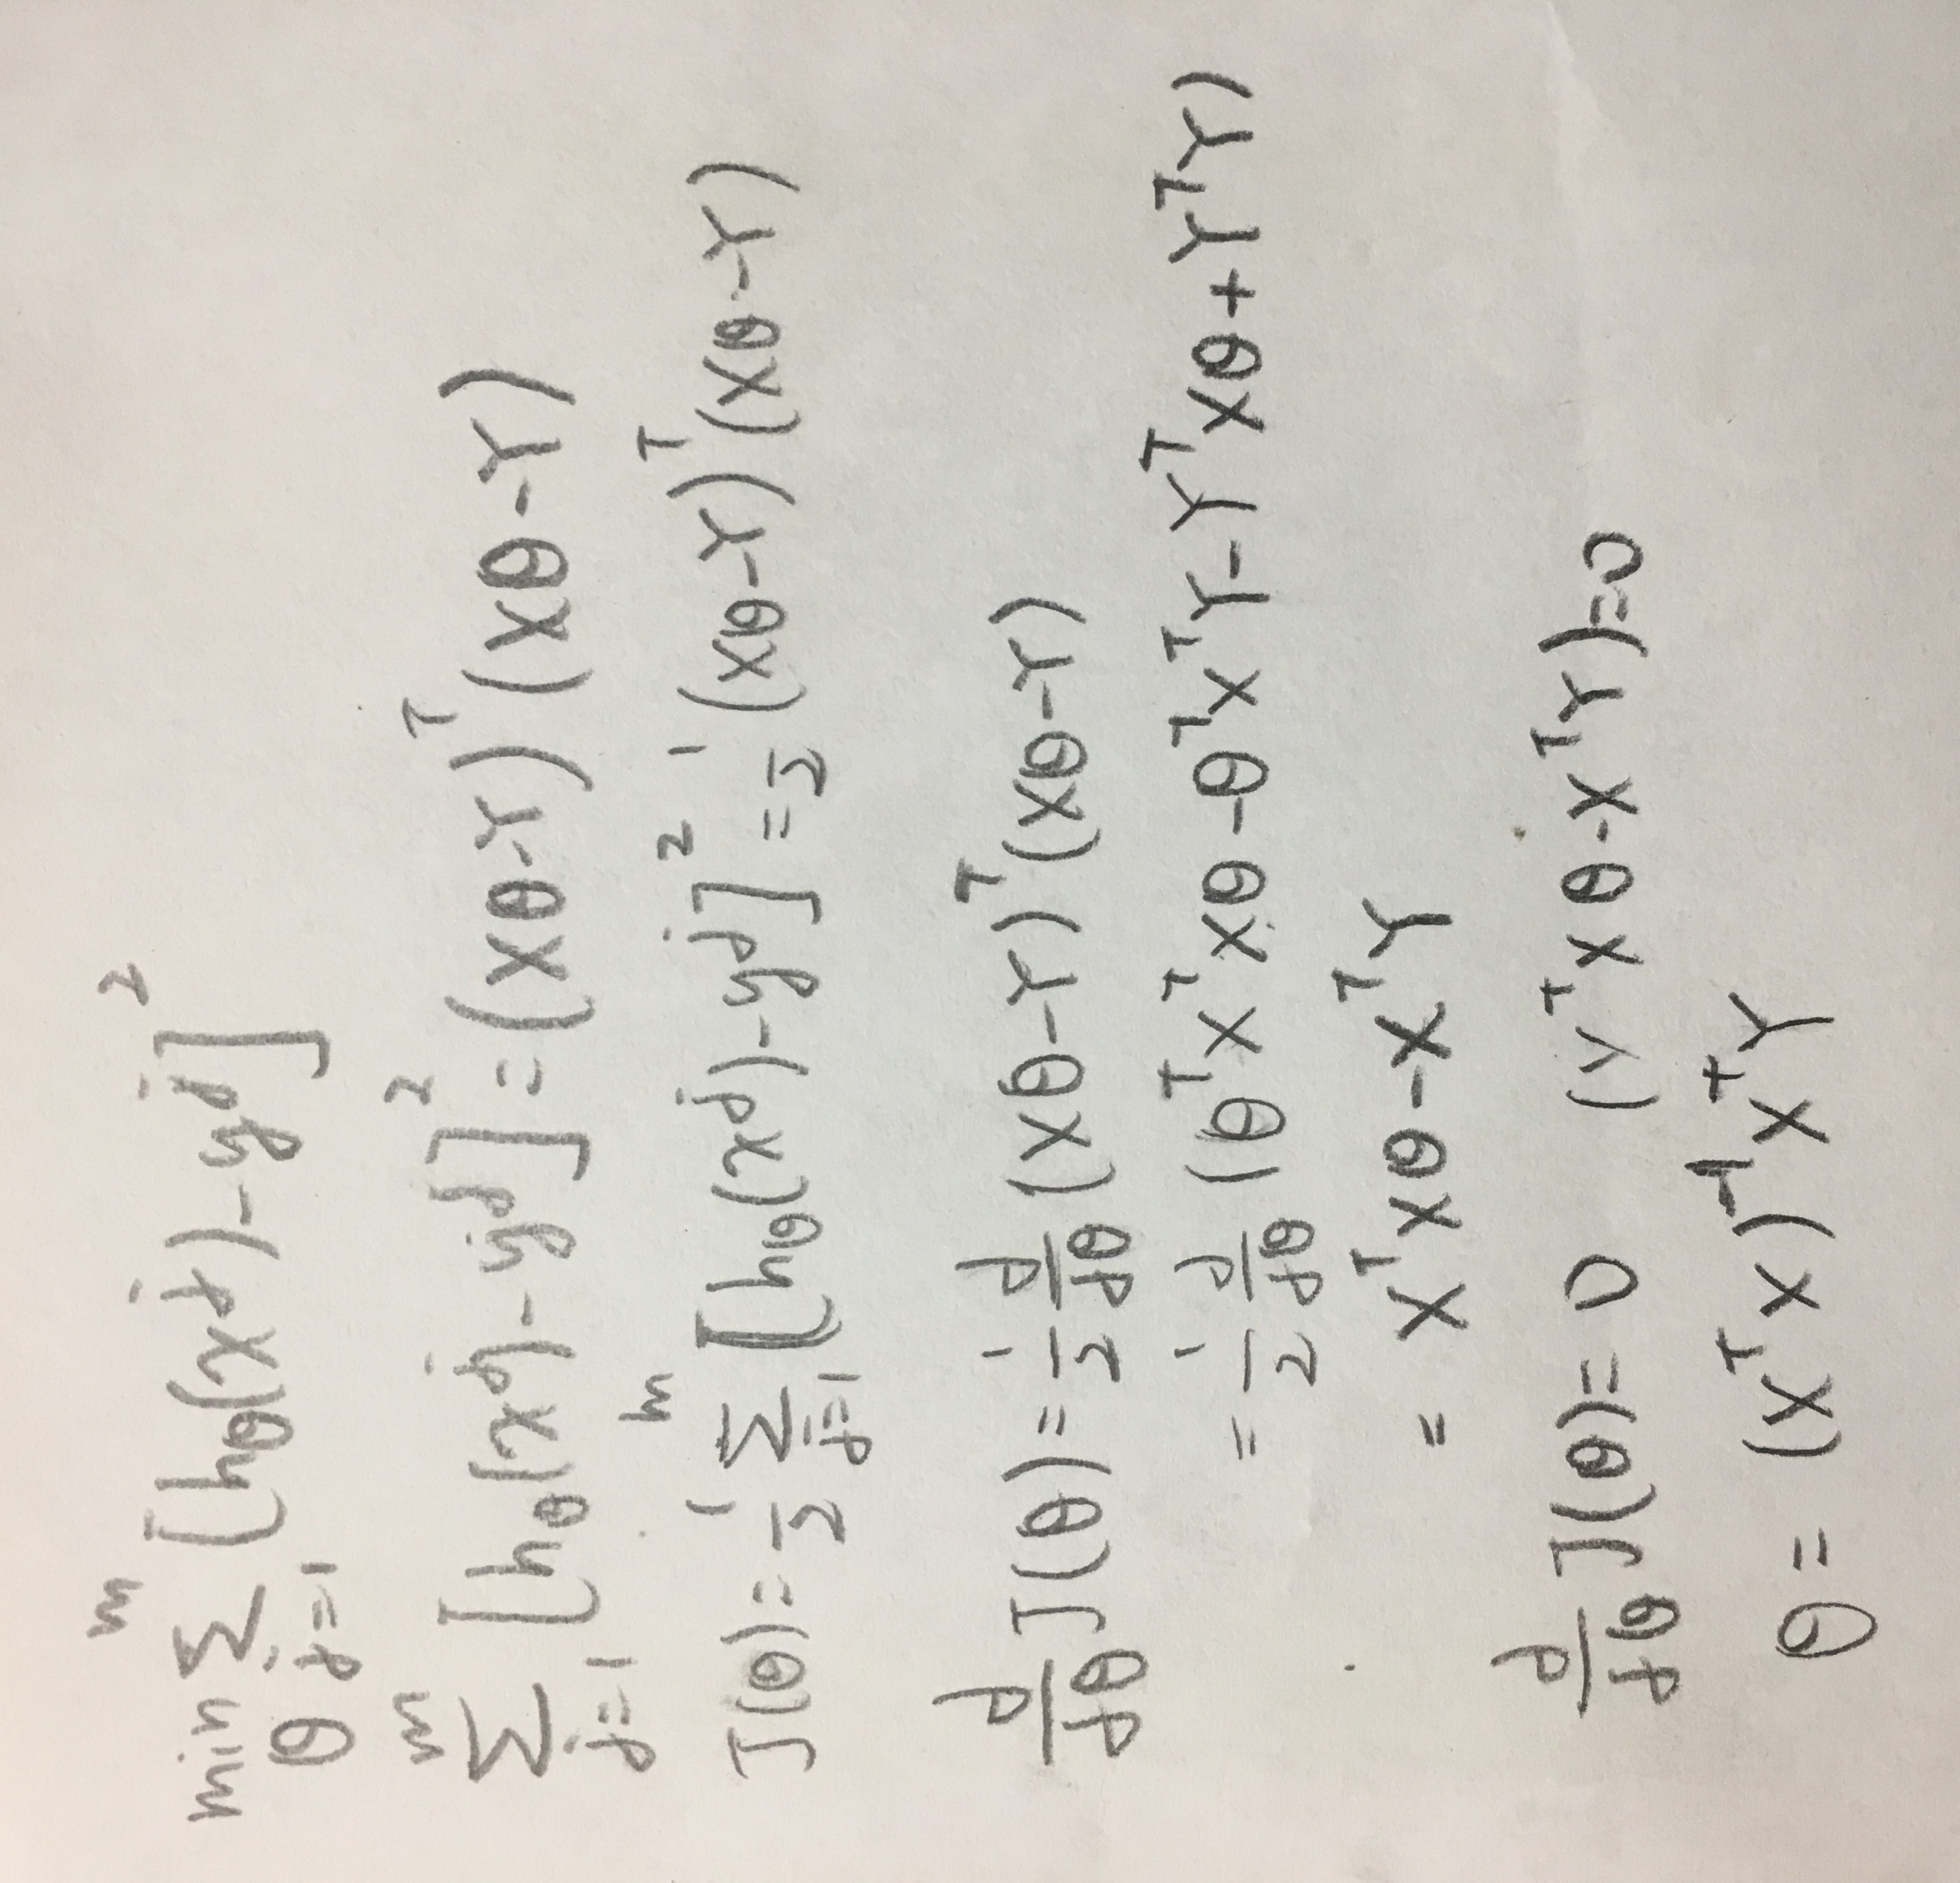 min_θ Σ_{j=1}^{m} [h_θ(x^j) - y^j]^2
Σ_{j=1}^{m} [h_θ(x^j) - y^j]^2 = (Xθ - Y)^T (Xθ - Y)
J(θ) = 1/2 Σ_{j=1}^{m} [h_θ(x^j) - y^j]^2 = 1/2 (Xθ - Y)^T (Xθ - Y)
d/dθ J(θ) = 1/2 d/dθ (Xθ - Y)^T (Xθ - Y)
= 1/2 d/dθ (θ^T X^T Xθ - θ^T X^T Y - Y^T Xθ + Y^T Y)
= X^T Xθ - X^T Y
d/dθ J(θ) = 0 (X^T Xθ - X^T Y) = 0
θ = (X^T X)^{-1} X^T Y